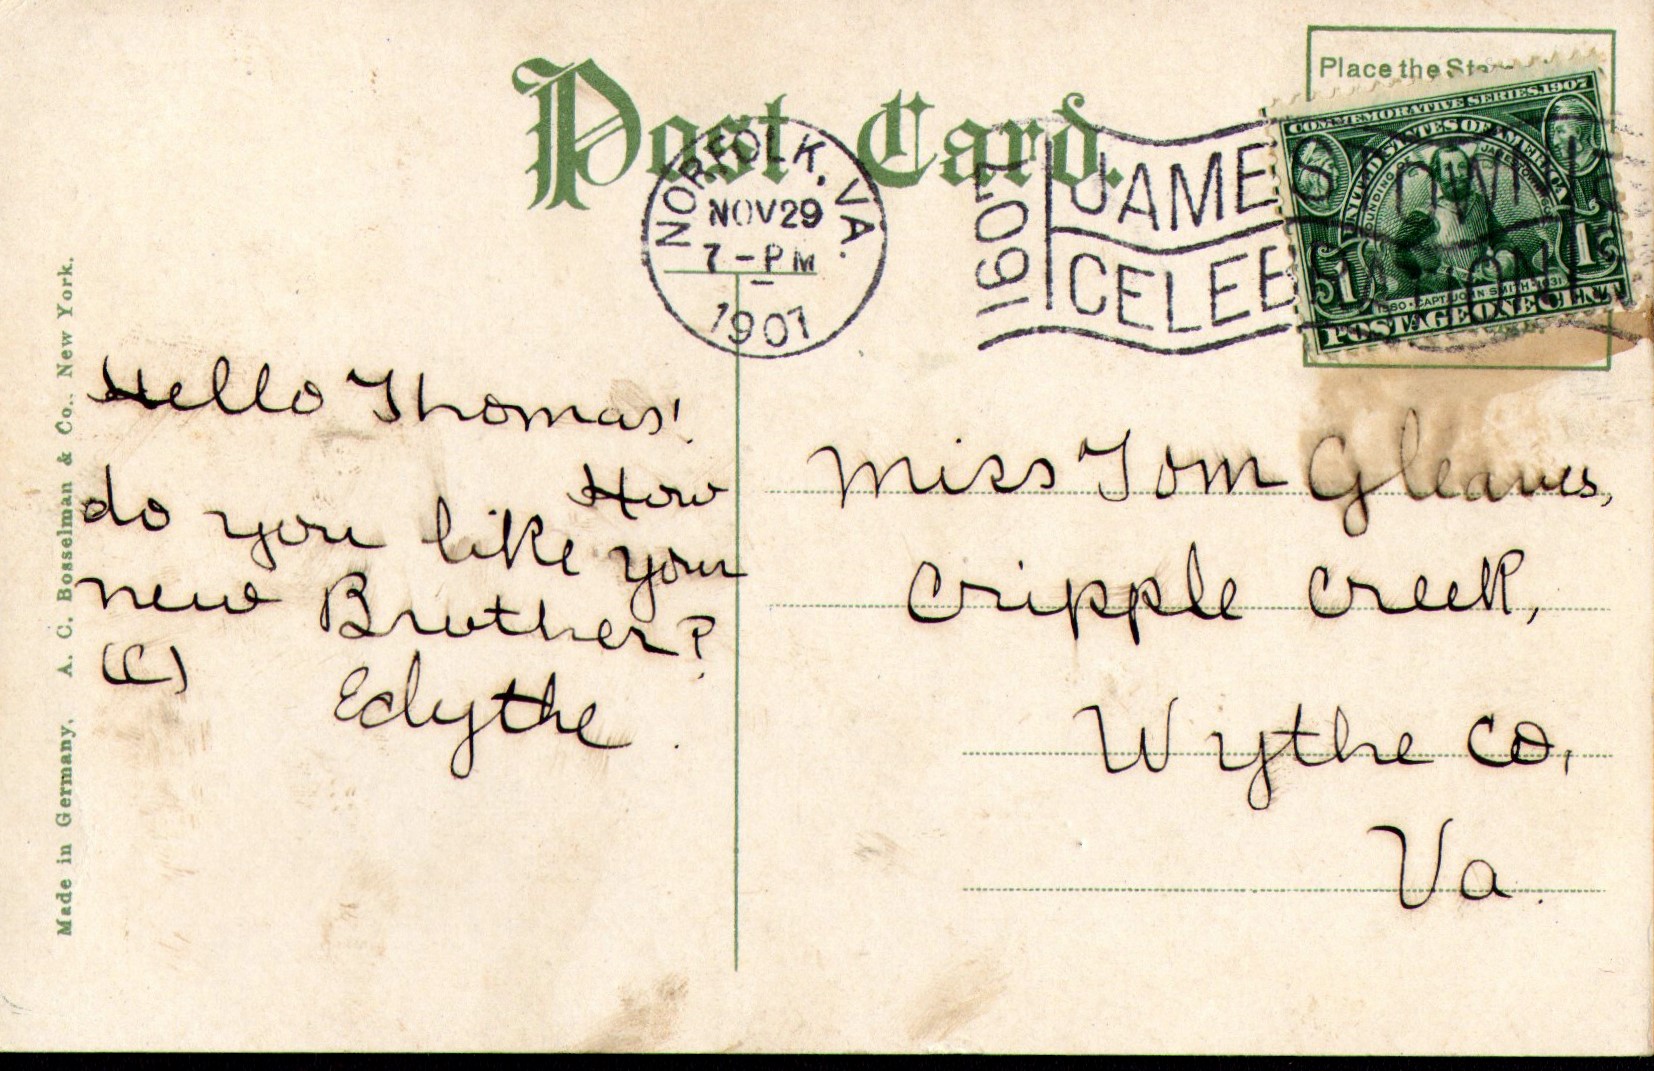 Post Card.
Place the
NORFOLK, VA.
NOV 29
7-PM
1907
1607
JAMES
CELEB
COMMEMORATIVE SERIES, 1907
UNITED STATES OF AMERICA
FOUNDING OF JAMESTOWN
1580 · CAPT. JOHN SMITH · 1631
POSTAGE ONE CENT
Hello Thomas!
How
do you like your
new Brother?
(C)
Edythe.
Miss Tom Gleaves,
Cripple Creek,
Wythe Co,
Va.
Made in Germany. A. C. Bosselman & Co., New York.